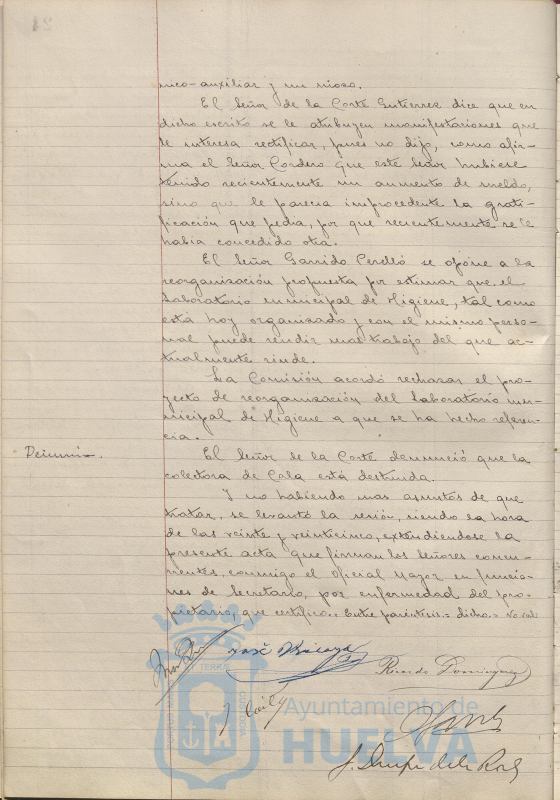 nico-auxiliar y un mozo.
El Señor de la Corte Gutierrez dice que en
dicho escrito se le atribuyen manifestaciones que
le interesa rectificar, pues no dijo, como afir-
ma el Señor Cordero que este Señor hubiese
tenido recientemente un aumento de sueldo,
sino que le parecia improcedente la grati-
ficación que pedia, por que recientemente se le
habia concedido otra.
El Señor Garrido Perelló se opone a la
reorganización propuesta por estimar que el
Laboratorio municipal de Higiene, tal como
está hoy organizado y con el mismo perso-
nal puede rendir mas trabajo del que ac-
tualmente rinde.
La Comisión acordó rechazar el pro-
yecto de reorganización del Laboratorio mu-
nicipal de Higiene a que se ha hecho referen-
cia.
Denuncia.
El Señor de la Corte denunció que la
colectora de Cala está destruida.
Y no habiendo mas asuntos de que
tratar, se levantó la sesión, siendo la hora
de las veinte y veinticinco, extendiendose la
presente acta que firman los Señores concu-
rrentes, conmigo el Oficial Mayor en funcio-
nes de Secretario, por enfermedad del pro-
pietario, que certifico.= Entre parentesis.= dicho.= No vale
José
Ricardo Dominguez
Ayuntamiento de
HUELVA